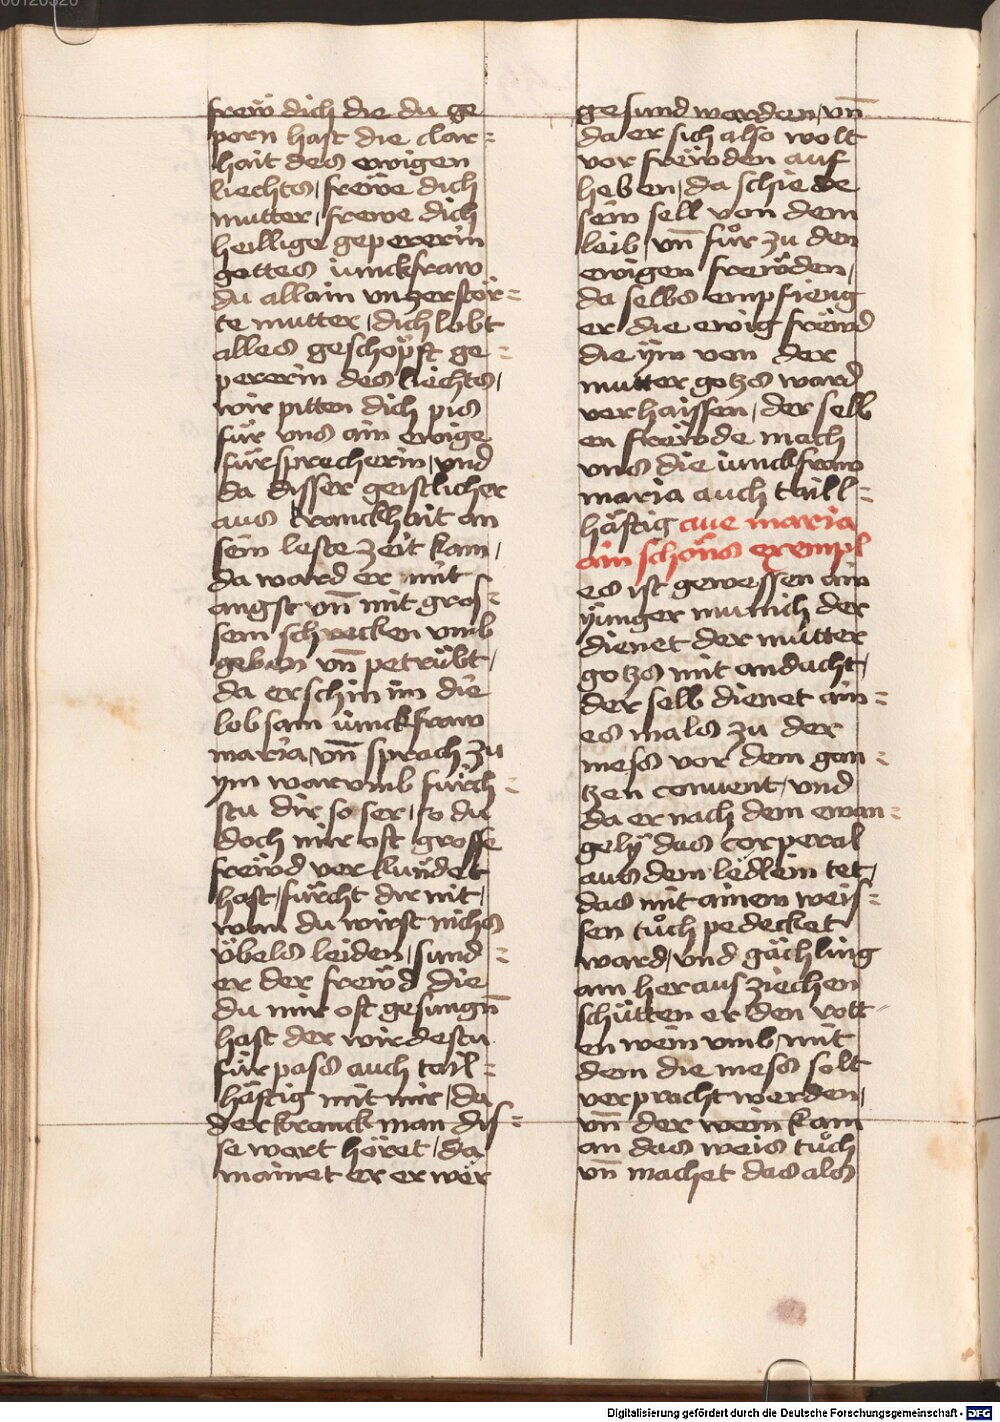 frew dich die du ge
porn hast die clar=
hait des ewigen
liechts, frewe dich
mutter, frewe dich
heillige gepererin
gottes iunckfraw
du allain vnzerstör=
te mutter, dich lobt
alles geschöpft ge=
pererin des liechts,
wir pitten dich pis
für vns ain ewige
fürsprecherin, vnd
da disser geistlicher
aus kranckhait an
sein leste zeit kam,
da ward er mit
angst vn̄ mit gros=
sem schrecken vmb
geben vn̄ petrübt,
da erschin im die
lobsam iunckfraw
maria, vn̄ sprach zu
ym warvmb fürch=
stu dir so ser, so du
doch mir oft grosse
frewd verkündet
hast, fürcht dir nit,
wan du wirst nichs
übels leiden, sund=
er der frewd die
du mir oft gesungn̄
hast der wirdestu
für pass auch tail=
häftig mit mir, da
der kranck man dis=
se wort höret, da
mainet er er wer
gesund worden, vn̄
da er sich also wolt
vor frewden auf
heben, da schiede
sein sell von dem
leib, vn̄ fůr zu den
ewigen frewden,
da selbs empfieng
er die ewig frewd
die ÿm von der
mutter gotzs ward
verhaissen, der selb
en frewde mach
vns die iunckfraw
maria auch taill=
häftig aue maria
ain schöns exempl
es ist gewessen ain
ÿunger munich der
dienet der mutter
gotzs mit andacht,
der selb dienet ain=
es mals zu der
mess vor dem gan=
tzen conuent, vnd
da er nach dem ewan=
gelÿ das corperal
aus dem ledlein tet,
das mit ainem weis=
sen tůch pedecket
ward, vnd gächling
am heraus ziechen
schütten er den rott=
en wein vmb, mit
dem die mess solt
verpracht werden,
vn̄ der wein kam
an das weis tůch
vn̄ machet das als
Digitalisierung gefördert durch die Deutsche Forschungsgemeinschaft - DFG